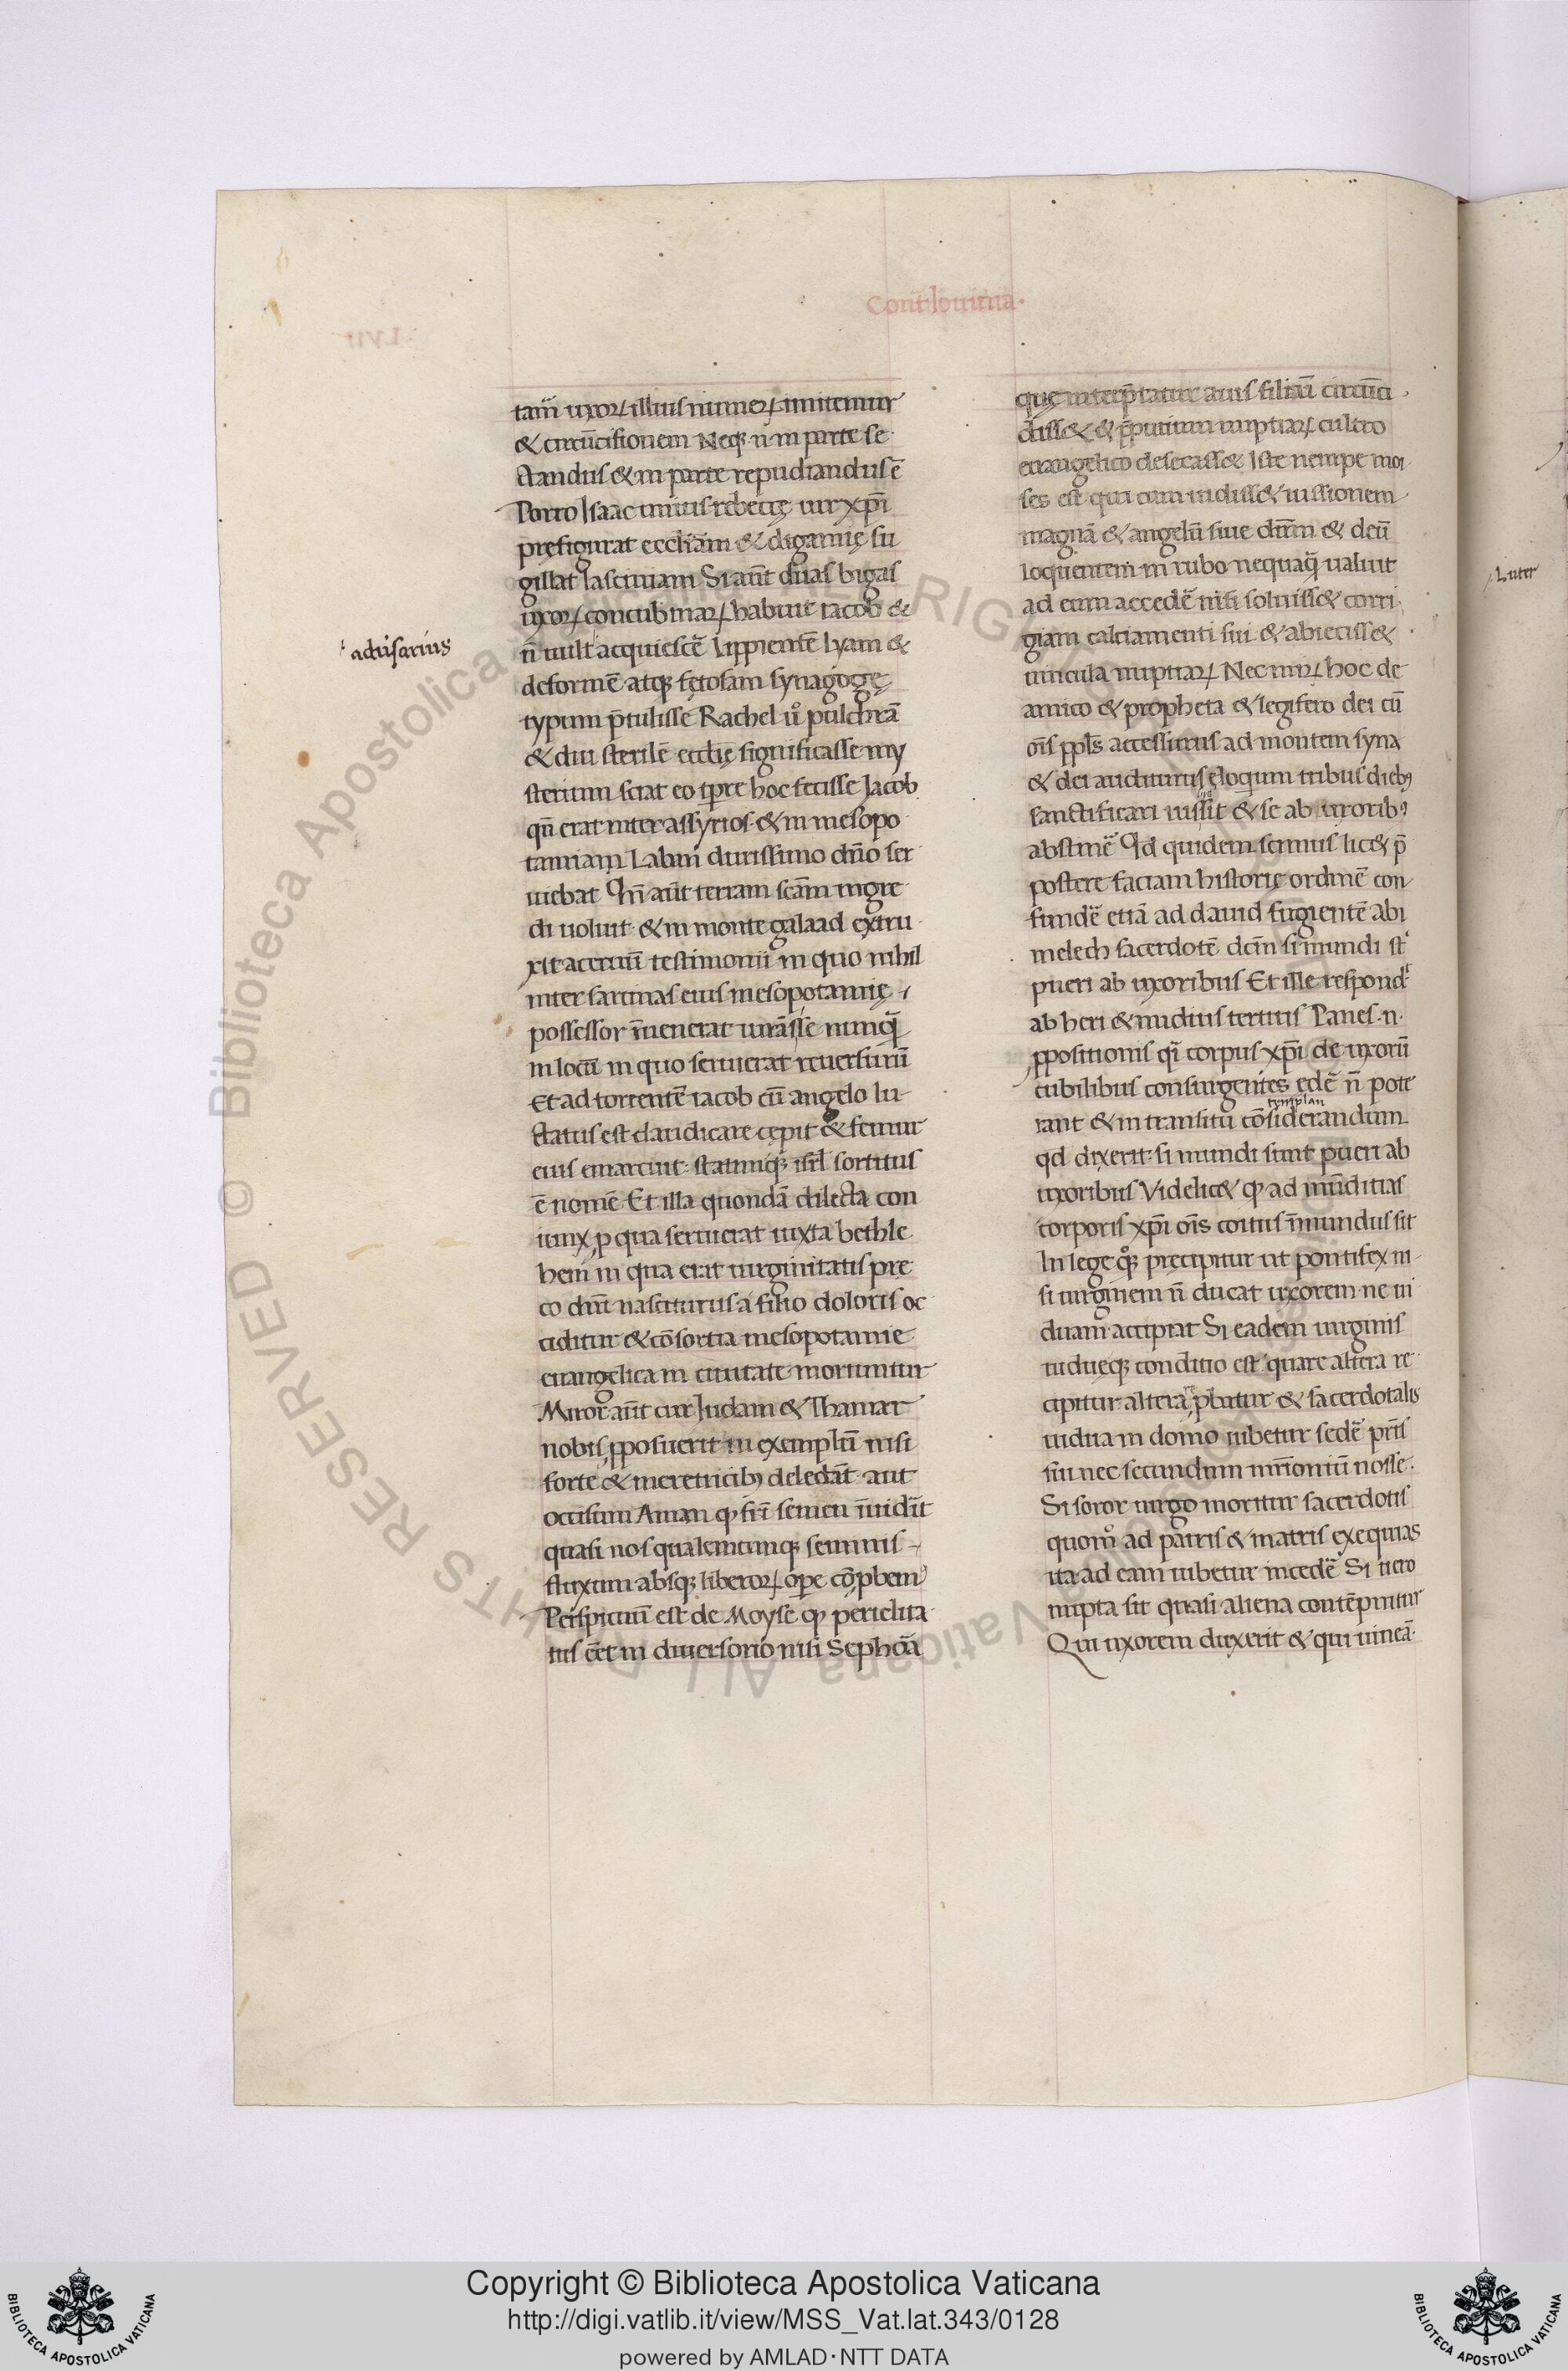 Cont̄ Iouinia.
LVII
tam̄ uxoꝝ illius numeꝝ imitemur
& circūcisionem Neqꝫ .n. in parte se
ctandus & in parte repudiandus ē
Porro Isaac unius rebeccę uir xp̄i
pręfigurat eccl̄iam & digamię su
gillat lasciuiam Si aūt duas bigas
uxoꝝ concubinaꝝ habuit iacob &
aduīsarius
n̄ uult acquiescē lippientē lyam &
deformē atqꝫ fętosam synagogę
typum p̄tulisse Rachel u̥ pulchrā
& diu sterilē eccl̄ię significasse my
sterium sciat eo tp̄re hoc fecisse Jacob
qn̄ erat inter assyrios & in mesopo
tamiam Laban durissimo dn̄o ser
uiebat Qn̄ aūt terram scām ingre
di uoluit & in monte galaad extru
xit aceruū testimonii in quo nihil
inter sarcinas eius mesopotamię
possessor īuenerat iurāsse nunq̄
in locū in quo seruierat reuersurū
Et ad torrentē iacob cū angelo lu
ctatus est claudicare cępit & femur
eius emarcuit statimqꝫ isrl̄ sortitus
ē nomē Et illa quondā dilecta con
iunx p qua seruierat iuxta bethle
hem in qua erat uirginitatis prę
co dn̄s nasciturus a filio doloris oc
ciditur & cōsortia mesopotamie
euangelica in ciuitate moriuntur
Miror aūt cur Judam & Thamar
nobis ꝓposuerit in exemplū nisi
forte & meretricibꝫ delectāt aut
occisum Aunan qꝫ fr̄i semen īuidīt
quasi nos qualemcunqꝫ seminis
fluxum absqꝫ liberoꝝ oꝑe cōꝓbem᷒
Perspicuū est de Moyse qꝫ periclita
tus eēt in diuersorio nisi Sephoā
quę interp̄tatur auis filium circūci
disse& & p̄putium nuptiaꝝ cultro
euangelico desecass& Iste nempe moi
ses est qui cum uidiss& uissionem
magnā & angelū siue dn̄m & deū
loquentem in rubo nequaq̄ ualuit
ad eum accedē nisi soluiss& corri
giam calciamenti sui & abieciss&
uincula nuptiaꝝ Nec miꝝ hoc de
amico & propheta & legifero dei cū
oīs ppl̄s accessurus ad montem syna
& dei auditurus eloqum tribus diebꝫ
sanctificari iussit & se ab uxoribꝰ
abstinē Qd quidem scimus lic& p̄
postere faciam historię ordinē con
fundē etiā ad dauid fugientē abi
melech sacerdotē dcm̄ si mundi st̄
pueri ab uxoribus Et ille respond̄
ab heri & nudius tertius Panes .n.
ꝓpositionis qī corpus xp̄i de uxorū
cubilibus consurgentes edē n̄ pote
templan
rant & in transitu cōsiderandum
qd dixerit si mundi sunt pueri ab
uxoribus Videlic& qꝫ ad mūditias
corporis xp̄i oīs coitus īmundus sit
In lege q̊ꝫ precipitur ut pontifex ni
si uirginem n̄ ducat uxorem ne ui
duam accipiat Si eadem uirginis
uiduęqꝫ conditio est quare altera re
re
cipitur altera ꝓbatur & sacerdotalis
uidua in domo iubetur sedē pr̄is
sui nec secundum mr̄ionium nosse
Si soror uirgo moritur sacerdotis
quom̊ ad patris & matris exequias
ita ad eam iubetur incedē Si uero
nupta sit quasi aliena contēpnitur
Qui uxorem duxerit & qui uineā
Luter
Copyright © Biblioteca Apostolica Vaticana
http://digi.vatlib.it/view/MSS_Vat.lat.343/0128
powered by AMLAD·NTT DATA
BIBLIOTECA APOSTOLICA VATICANA
BIBLIOTECA APOSTOLICA VATICANA